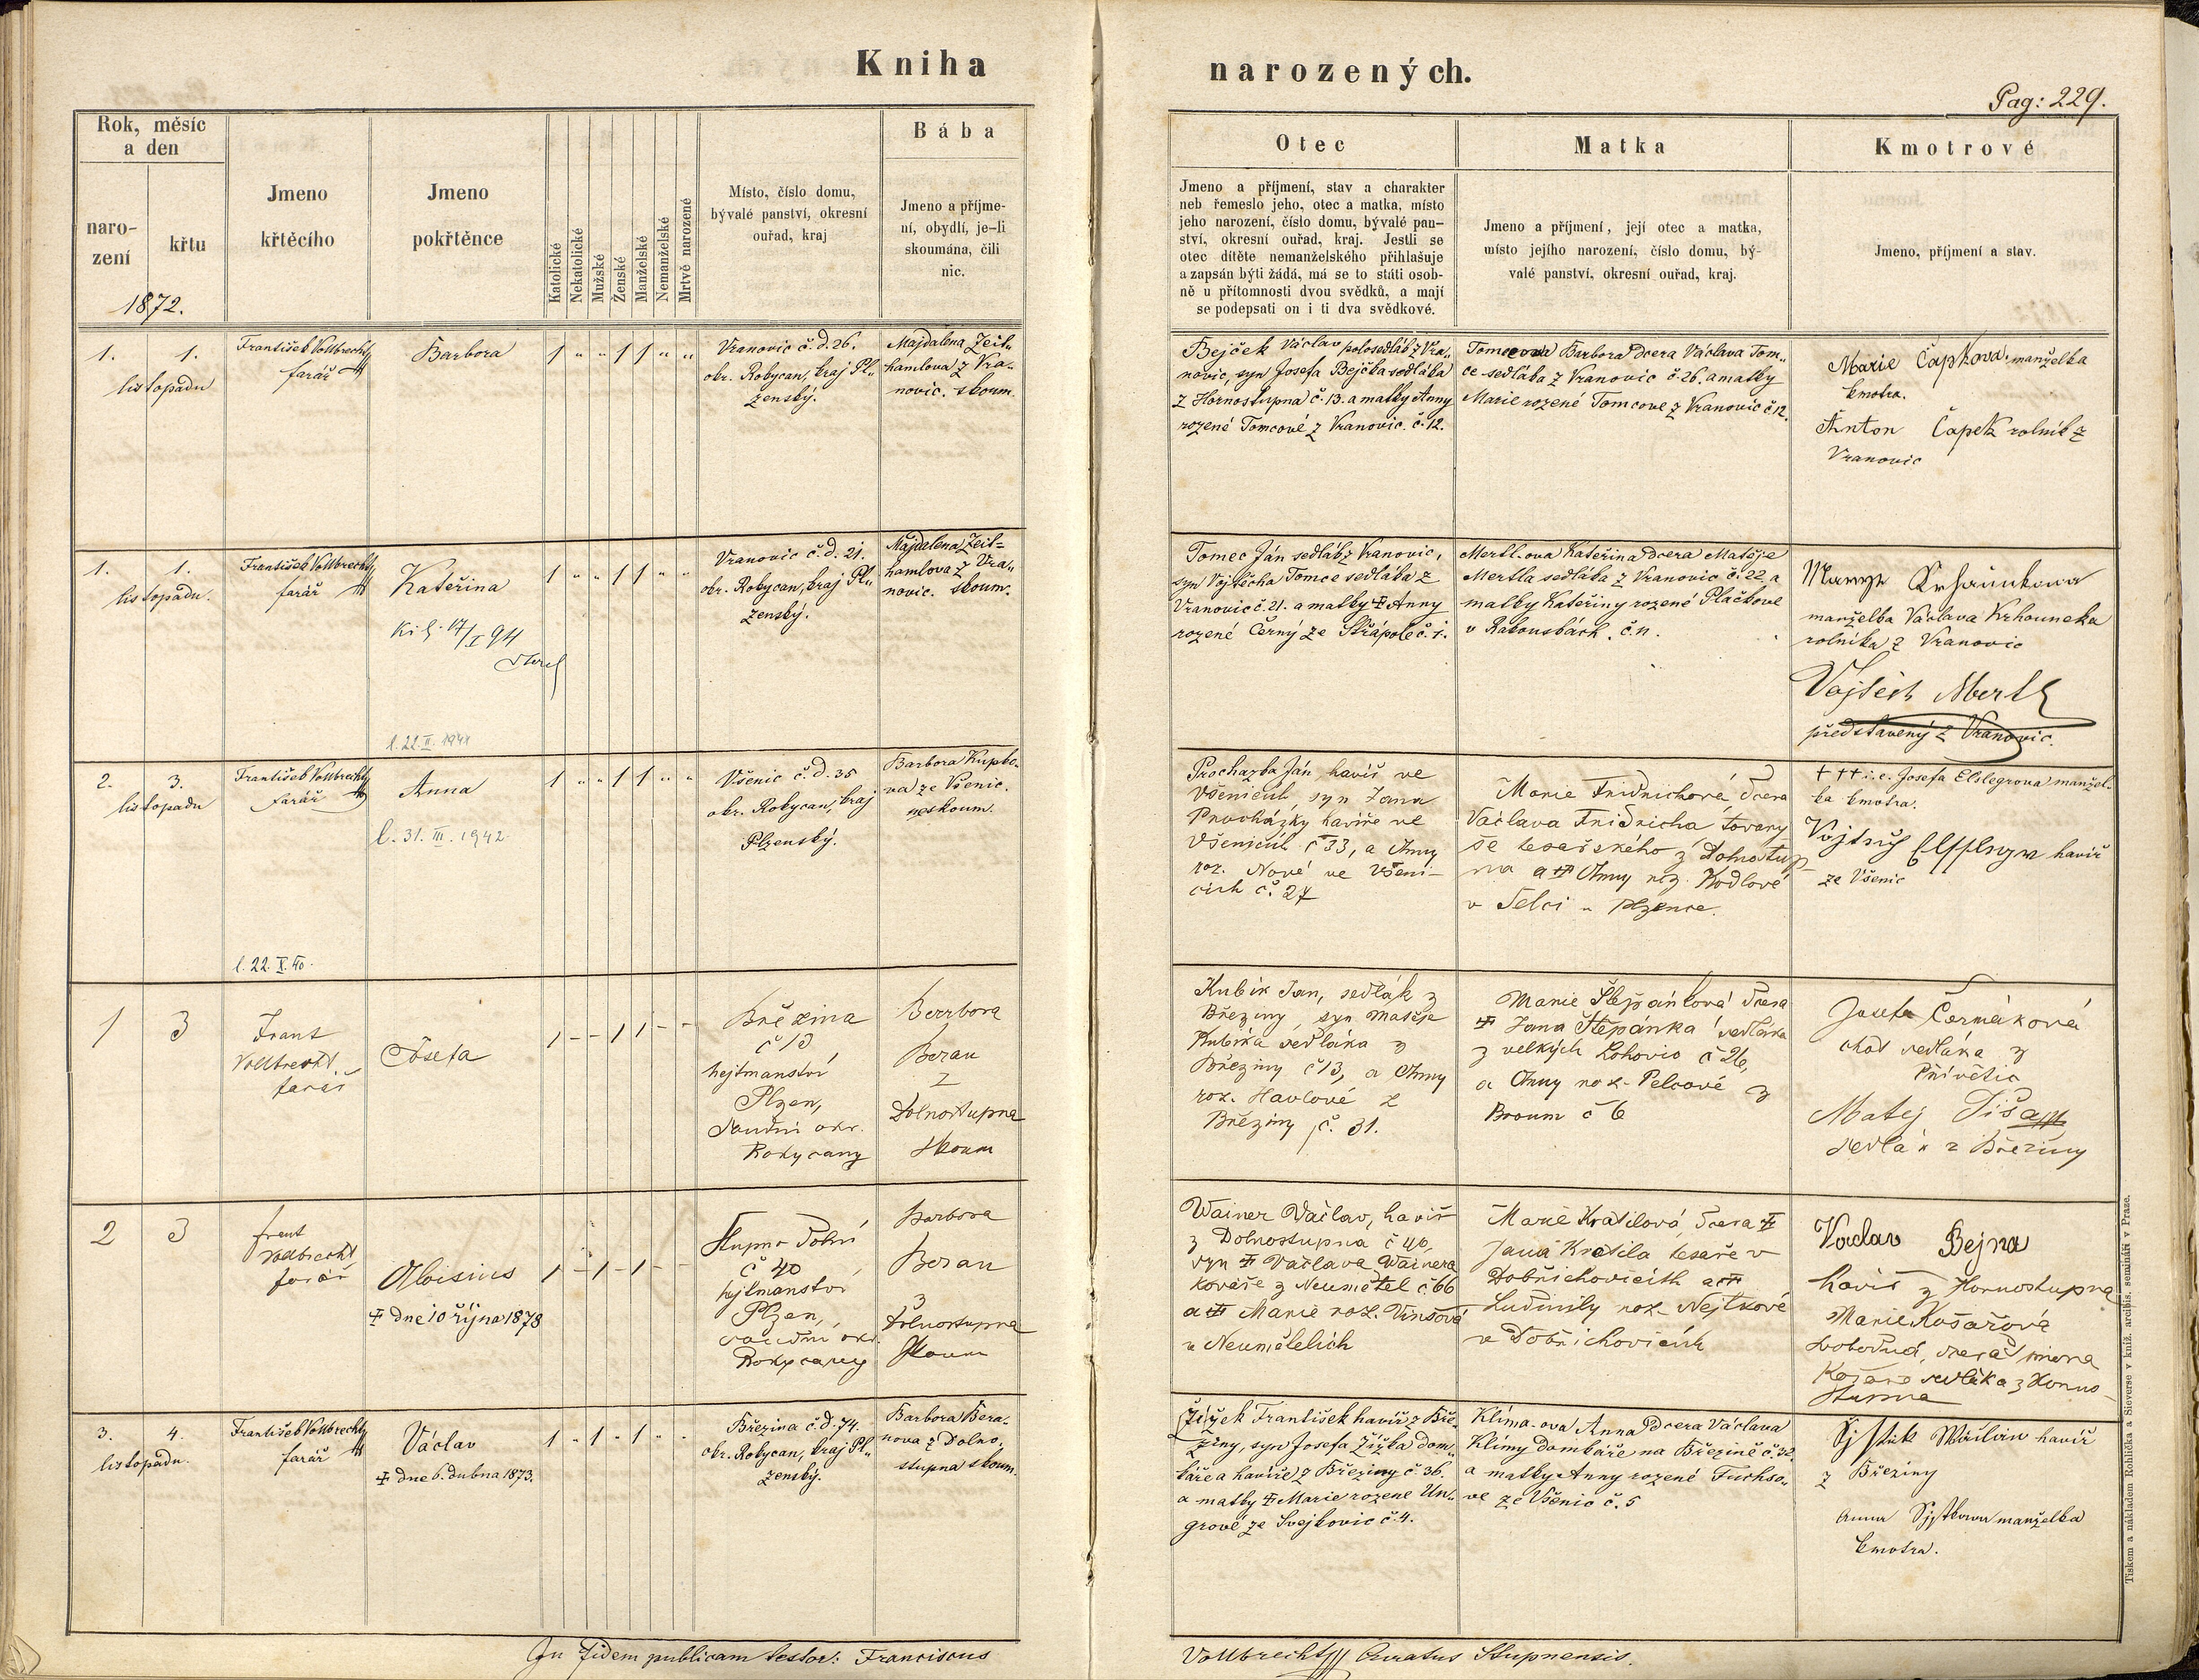 Kniha
narozených.
Pag: 229.
Rok, měsíc
a den
naro-
zení
křtu
1872.
Jmeno
křtěcího
Jmeno
pokřtěnce
Katolické
Nekatolické
Mužské
Ženské
Manželské
Nemanželské
Mrtvě narozené
Místo, číslo domu,
bývalé panství, okresní
ouřad, kraj
Bába
Jmeno a příjme-
ní, obydlí, je-li
skoumána, čili
nic.
Otec
Jmeno a příjmení, stav a charakter
neb řemeslo jeho, otec a matka, místo
jeho narození, číslo domu, bývalé pan-
ství, okresní ouřad, kraj. Jestli se
otec dítěte nemanželského přihlašuje
a zapsán býti žádá, má se to státi osob-
ně u přítomnosti dvou svědků, a mají
se podepsati on i ti dva svědkové.
Matka
Jmeno a příjmení, její otec a matka,
místo jejího narození, číslo domu, bý-
valé panství, okresní ouřad, kraj.
Kmotrové
Jmeno, příjmení a stav.
1. 1.
listopadu
František Vollbrecht
farář
Barbora
1 " " 1 1 " "
Vranovic č. d. 26.
okr. Rokycan, kraj Pl„
zenský.
Majdalena Zeit„
hamlova z Vra„
novic. skoum.
Bejček Václav polosedlák z Vra„
novic, syn Josefa Bejčka sedláka
z Hornostupna č. 13. a matky Anny
rozené Tomcové z Vranovic. č. 12.
Tomcova Barbora dcera Václava Tom„
ce sedláka z Vranovic č. 26. a matky
Marie rozené Tomcove z Vranovic č 12.
Marie Čapkova, manželka
kmotra.
Anton Čapek rolník z
Vranovic
1. 1.
listopadu.
František Vollbrecht
farář
Kateřina
17/I 94
l. 22. II. 1941
1 " " 1 1 " "
Vranovic č. d. 21.
okr. Rokycan, kraj Pl„
zenský.
Majdalena Zeit=
hamlova z Vra„
novic. skoum.
Tomec Ján sedlák z Vranovic,
syn Vojtěcha Tomce sedláka z
Vranovic č. 21. a matky ‡ Anny
rozené Černý ze Střápole č. 1.
Mertl-ova Kateřina dcera Matěje
Mertla sedláka z Vranovic č. 22 a
matky Kateřiny rozené Plačkove
v Rakousbách. č. 11.
manželka Václava Krhouneka
rolníka z Vranovic
Vojtěch Mertl
představený z Vranovic.
2. 3.
listopadu
František Vollbrecht
farář
l. 22. X. 40.
Anna
l. 31. III. 1942.
1 " " 1 1 " "
Všenic č. d. 35
okr. Rokycan, kraj
Plzenský.
Barbora Kupko„
va ze Všenic.
neskoum.
Prochazka Ján, havíř ve
Všenicích, syn Jana
Procházky havíře ve
Všenicích č 33, a Anny
roz. Nové ve Všeni-
cích č. 27
Marie Fridrichová, dcera
Václava Fridricha tovary
še tesařského z Dolnostup-
na a ‡ Anny roz. Kodlové
v Selci u Plzence.
+ ++ i. e. Josefa Elslegrova manžel„
ka kmotra.
havíř
ze Všenic
1 3
Frant
Vollbrecht
farář
Josefa
1 - - 1 1 - -
Březina
č 13
hejtmanství
Plzen,
soudní okr.
Rokycany
Berrbora
Beran
z
Dolnostupna
skoum
Kubík Jan, sedlák z
Březiny, syn Matěje
Kubíka sedláka z
Březiny č 13, a Anny
roz. Havlové z
Březiny č. 31.
Marie Štepánková dcera
‡ Jana Štepánka sedláka
z velkých Lohovic č 26,
a Anny roz. Pelcové z
Broum č 6
Josefa Čermáková
choť sedláka z
Přívětic
Matej Tiša
sedlák z Březiny
2 3
frant
Vollbrecht
farář
Aloisius
‡ dne 10 října 1878
1 - 1 - 1 - -
Stupno Dolní
č 40
hejtmanství
Plzen,
soudní okr.
Rokycany
Barbora
Beran
z
Dolnostupna
skoum
Wainer Václav, havíř
z Dolnostupna č 40,
syn ‡ Václava Wainera
kováře z Neumětel č 66
a ‡ Marie roz. Vinšová
v Neumětelích
Marie Kratilová, dcera ‡
Jana Kratila tesaře v
Dobřichovicích a ‡
Ludmily roz. Nejtkové
v Dobřichovicích
Vaclav Bejna
havíř z Hornostupna
Marie Košařová
svobodná, dcera
Košaře sedláka z Horno-
stupna
3. 4.
listopadu.
František Vollbrecht
farář
Václav
‡ dne 6. dubna 1873.
1 " 1 " 1 " "
Březina č. d. 74.
okr. Rokycan, kraj Pl„
zenský.
Barbora Bera„
nova z Dolno„
stupna skoum.
Žížek František havíř z Bře„
ziny, syn Josefa Žížka dom„
káře a havíře z Březiny č. 36.
a matky ‡ Marie rozené Un„
grové ze Svejkovic č. 4.
Klíma-ova Anna dcera Václava
Klímy domkáře na Březině č. 32.
a matky Anny rozené Fuchso„
ve ze Všenic č. 5
havíř
z Březiny
Anna manželka
kmotra.
In fidem publicam testor: Franciscus
Vollbrecht Curatus Stupnensis.
Tiskem a nákladem Rohlíčka a Sieverse v kníž. arcibis. semináři v Praze.